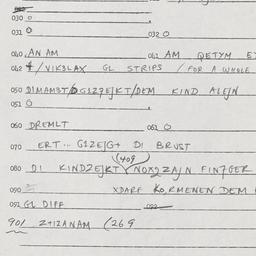 030 0
031 0 032 0
040 AN AM 041 AM QETYM
042 /VIKSLAX GL STRIPS /FOR A WHOLE
050 DIMAMST/ G1Z9EJKT/DEM KIND ALEJN
051 0
060 DREMLT 061 0
070 ERT... G1ZEJG+ DI BRUST
(409
080 DI KINDZEJKT/NOX2ZAJN FIN7GER
090 XDARF KO,RMENEN DEM
091 GL DIFF 092
901 Z+1ZANAM (269